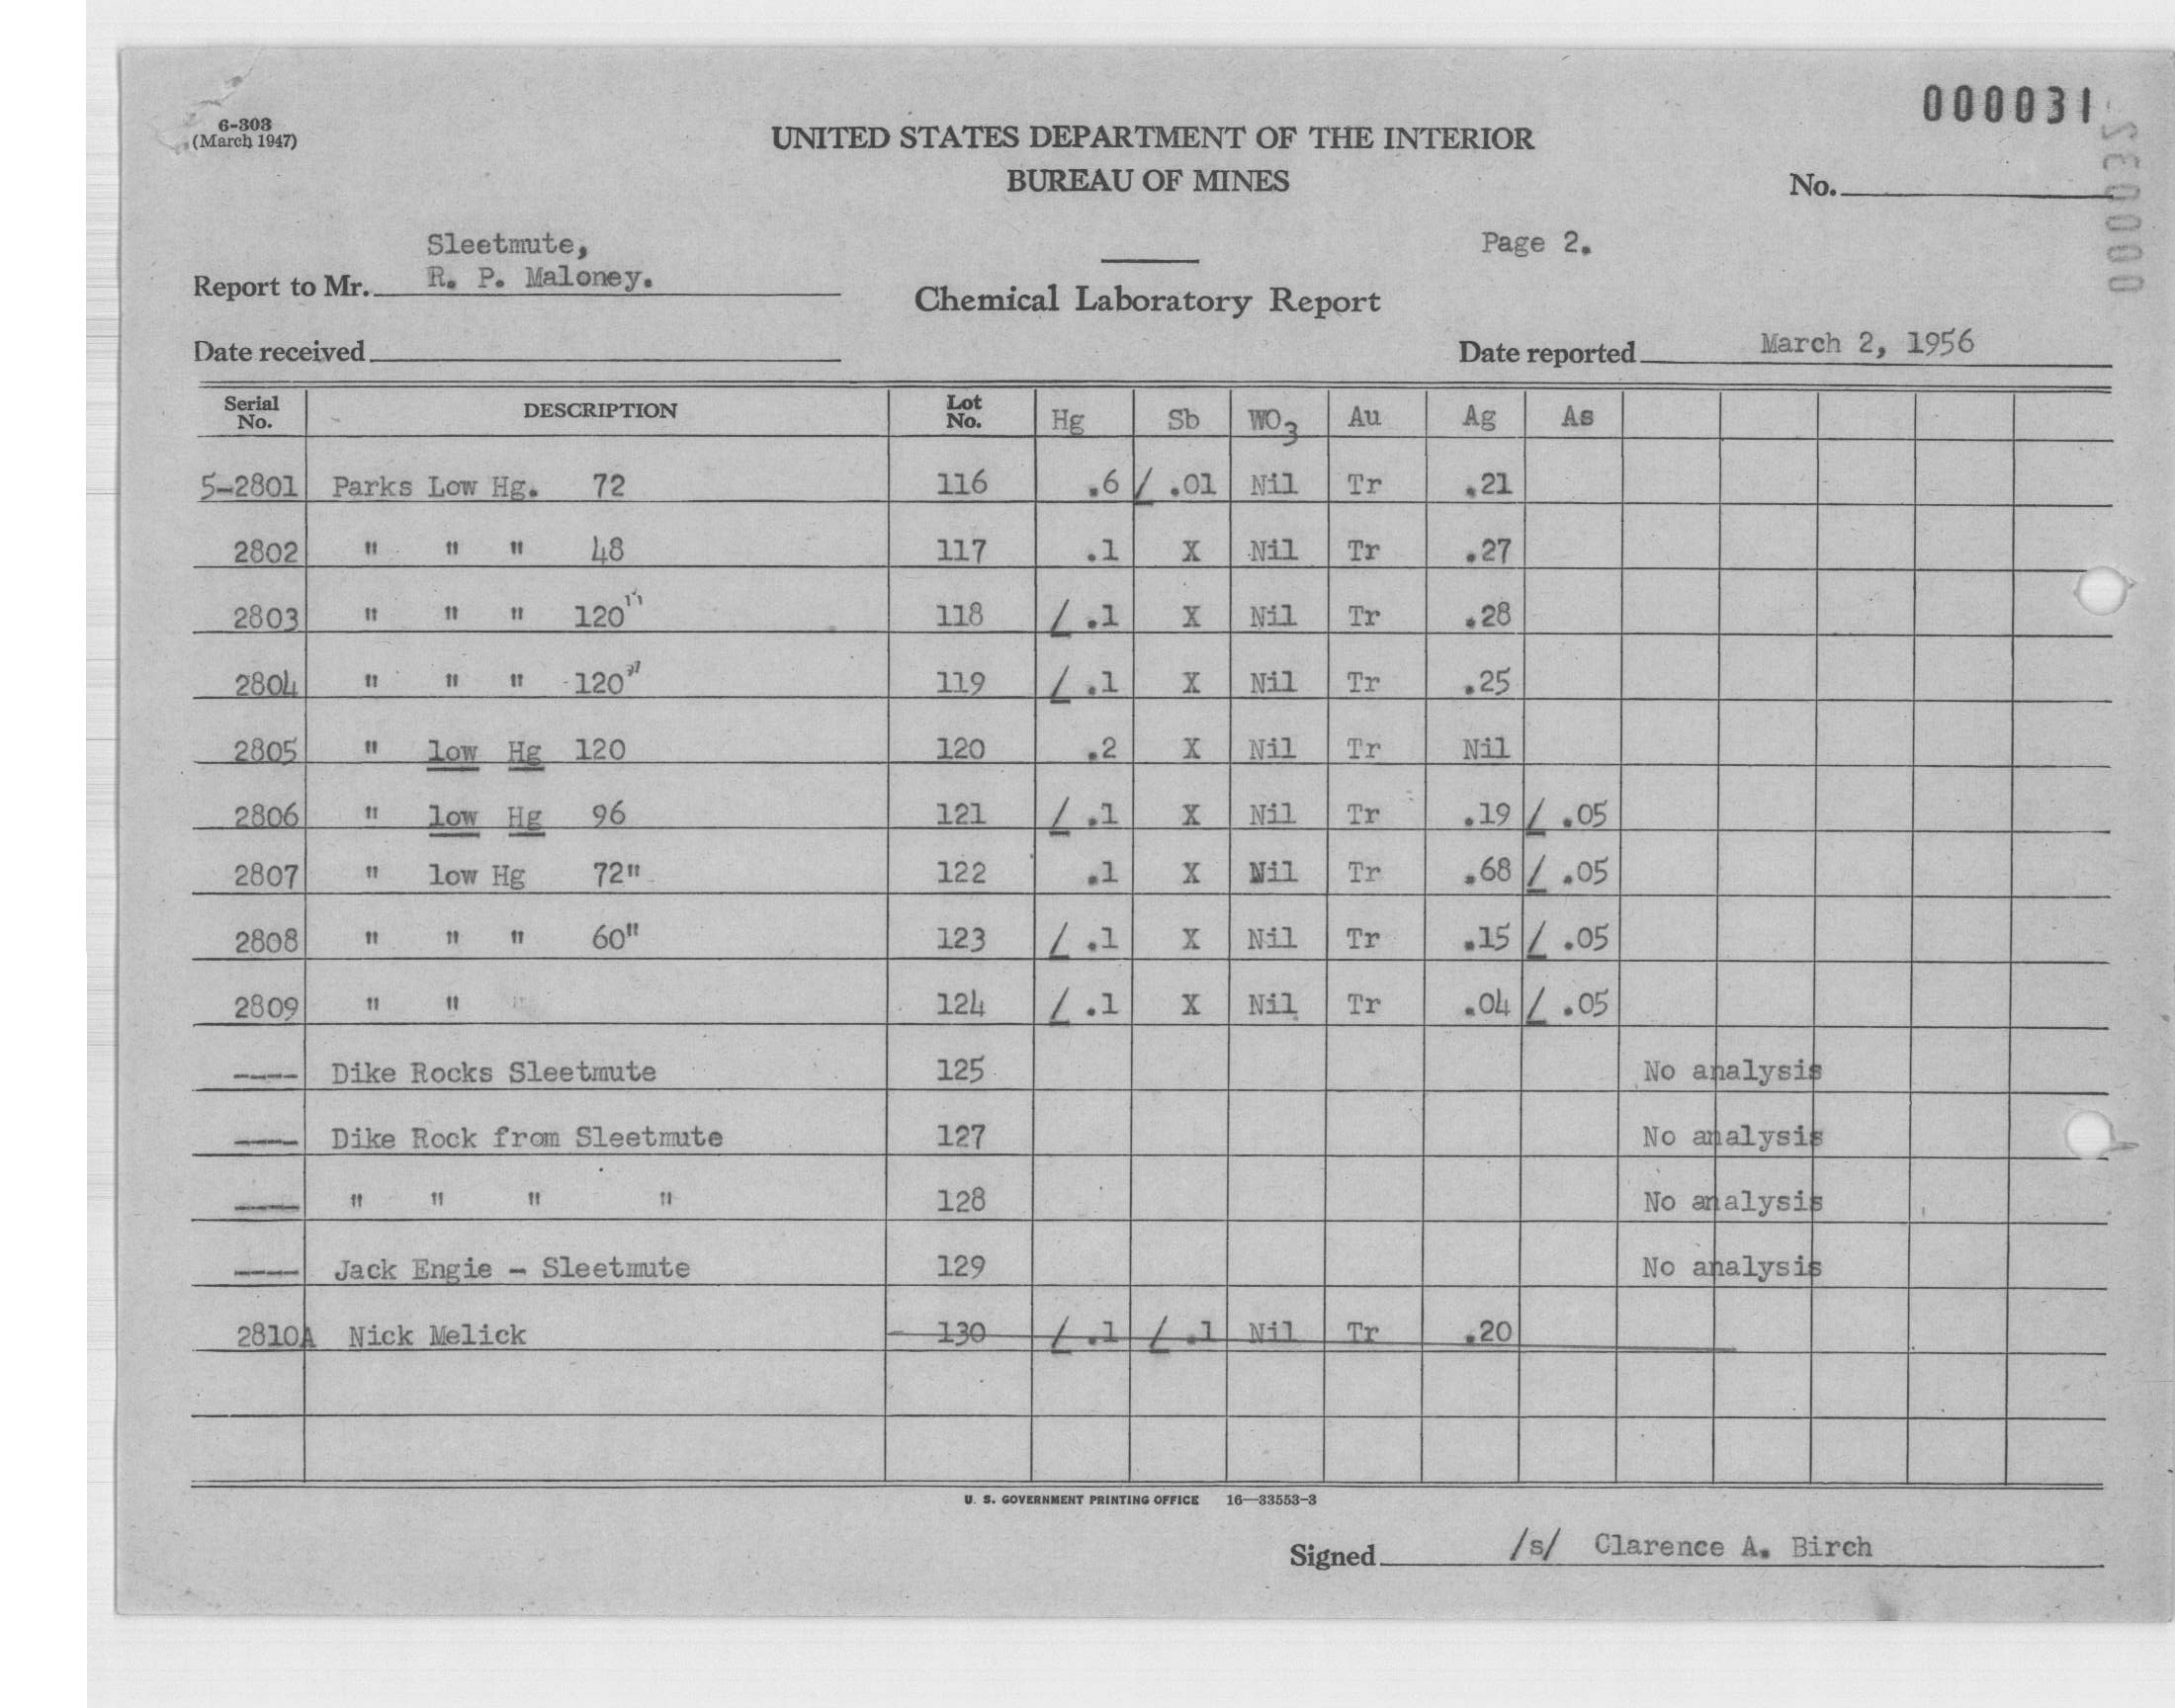 000031
000032
6-303
(March 1947)
UNITED STATES DEPARTMENT OF THE INTERIOR
BUREAU OF MINES
No.
Sleetmute,
Page 2.
Report to Mr. R. P. Maloney.
Chemical Laboratory Report
Date received
Date reported March 2, 1956
Serial No. DESCRIPTION Lot No. Hg Sb WO3 Au Ag As
5-2801 Parks Low Hg. 72 116 .6 / .01 Nil Tr .21
2802 " " " 48 117 .1 X Nil Tr .27
2803 " " " 120" 118 / .1 X Nil Tr .28
2804 " " " 120" 119 / .1 X Nil Tr .25
2805 " low Hg 120 120 .2 X Nil Tr Nil
2806 " low Hg 96 121 / .1 X Nil Tr .19 / .05
2807 " low Hg 72" 122 .1 X Nil Tr .68 / .05
2808 " " " 60" 123 / .1 X Nil Tr .15 / .05
2809 " " " 124 / .1 X Nil Tr .04 / .05
---- Dike Rocks Sleetmute 125 No analysis
---- Dike Rock from Sleetmute 127 No analysis
---- " " " " 128 No analysis
---- Jack Engie - Sleetmute 129 No analysis
2810A Nick Melick 130 / .1 / .1 Nil Tr .20
U. S. GOVERNMENT PRINTING OFFICE 16—33553-3
Signed /s/ Clarence A. Birch